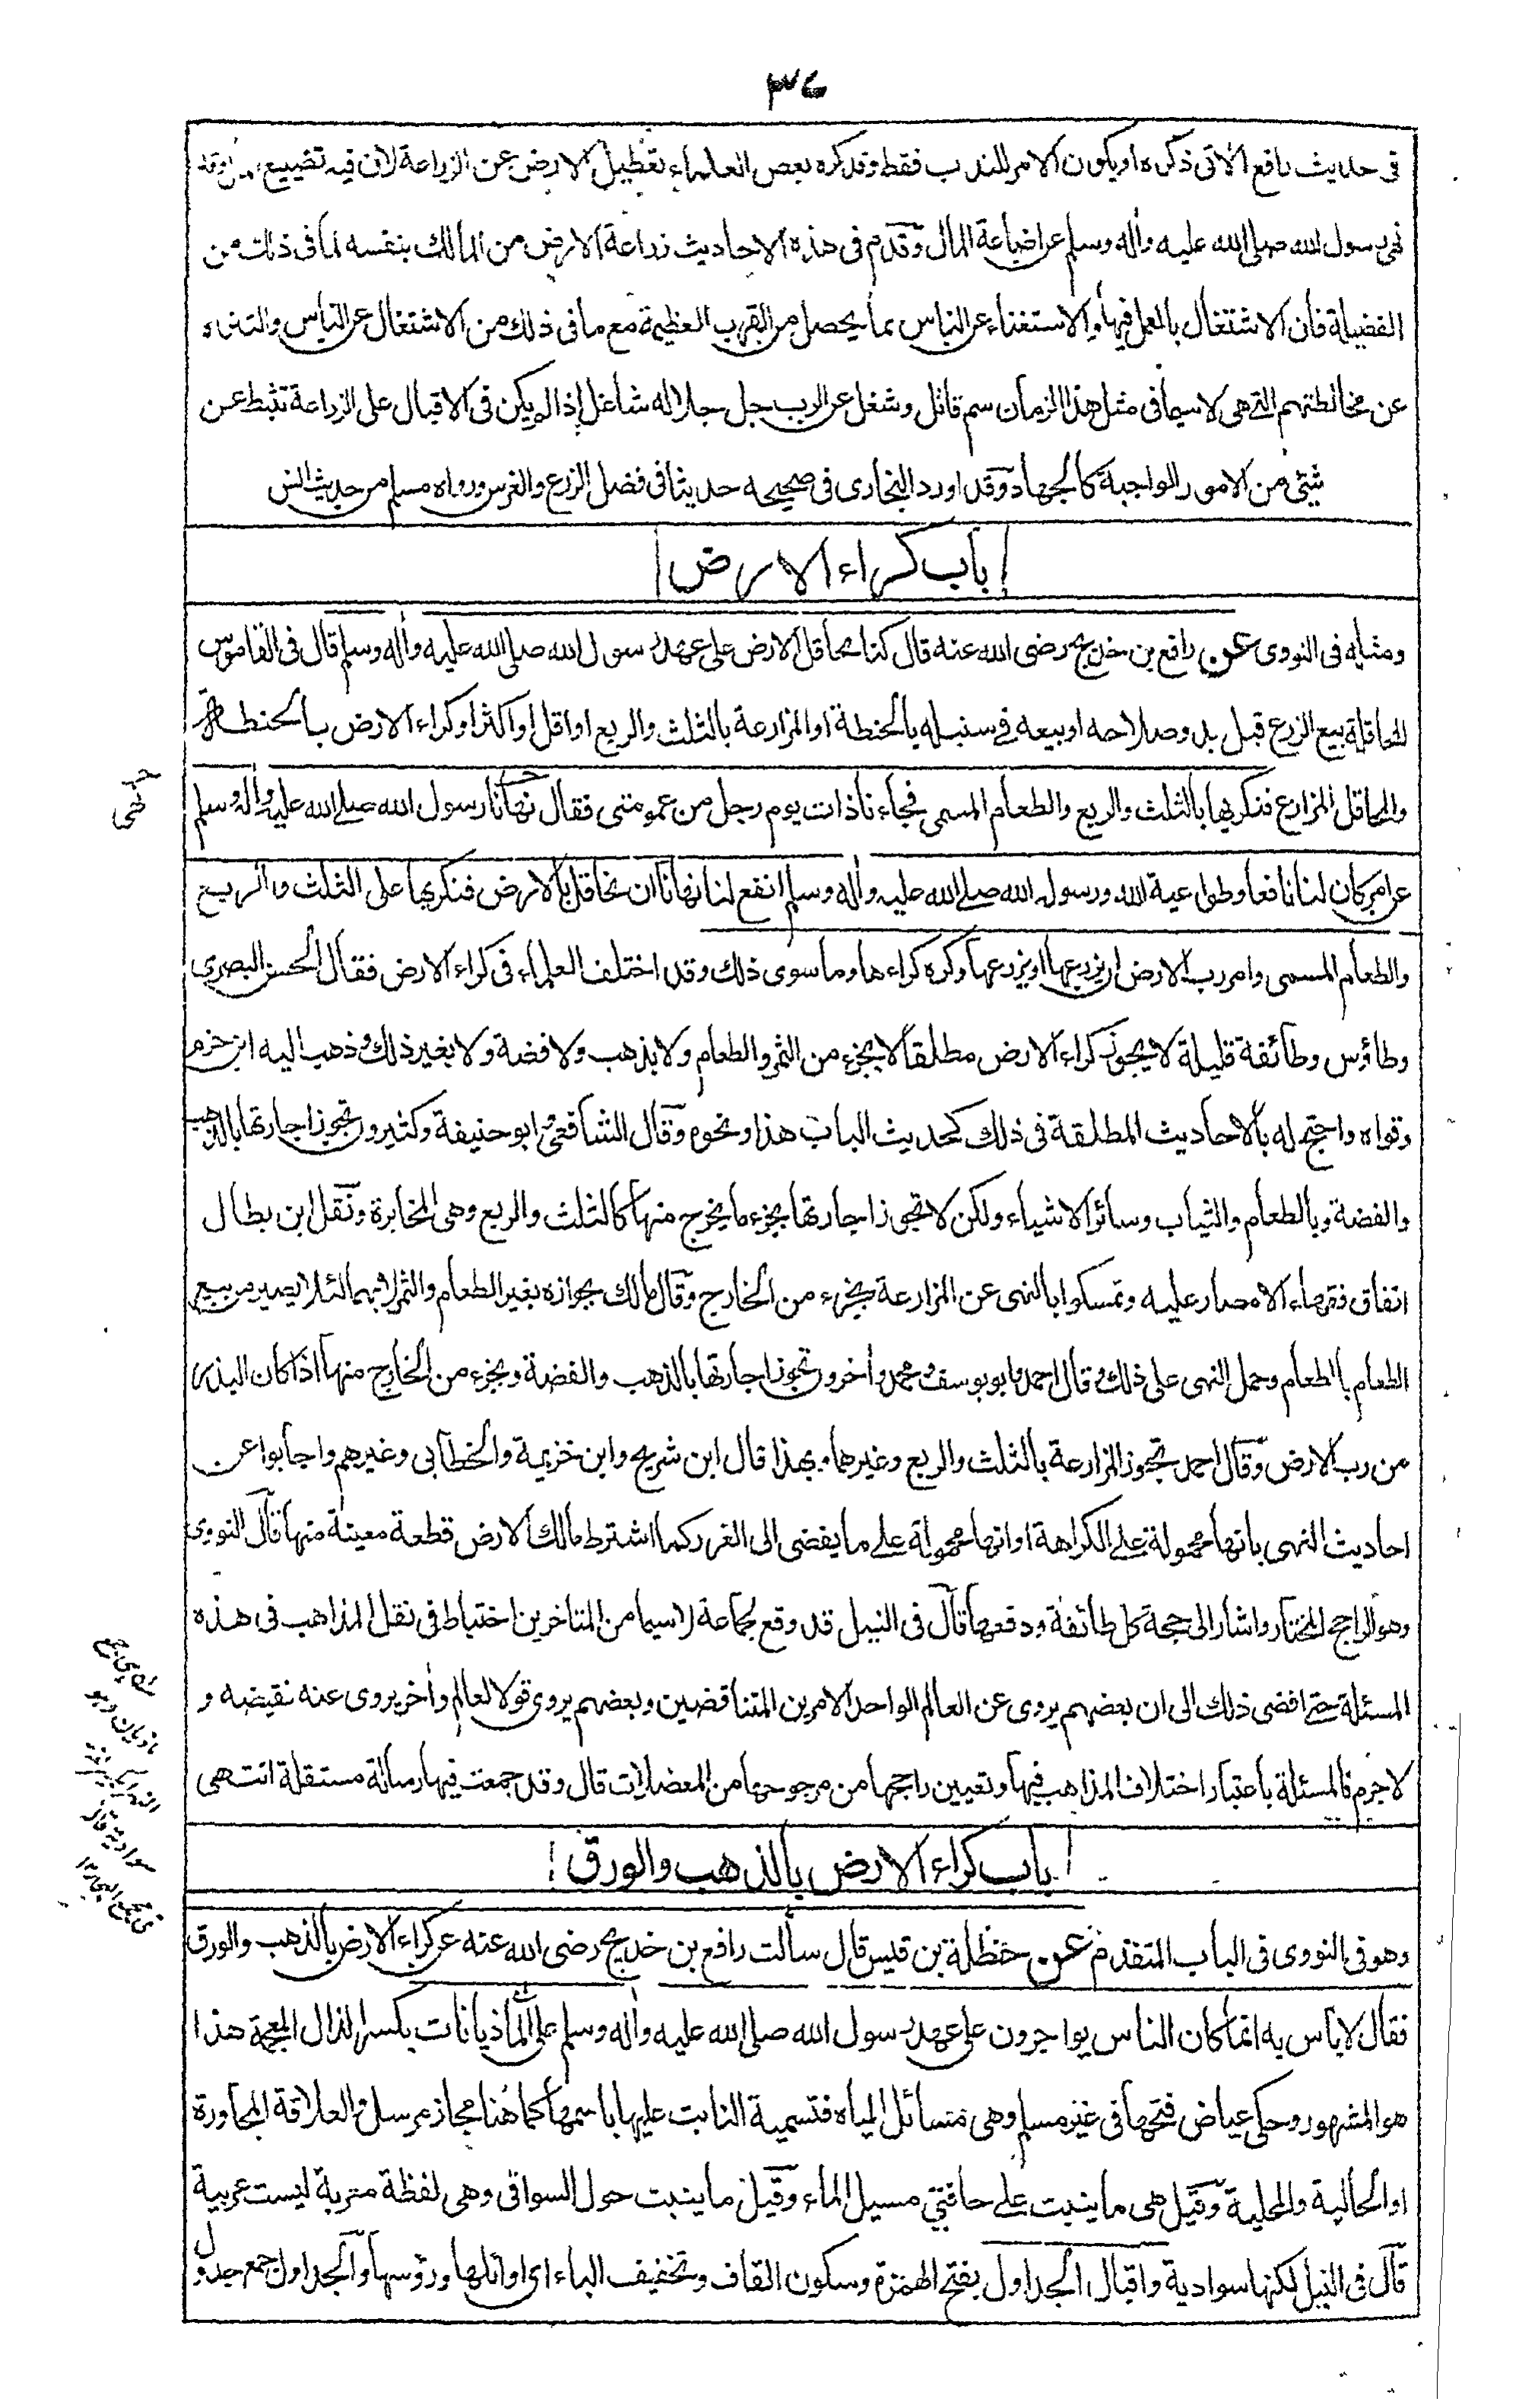 ٣٧
فى حديث رافع الآتى ذكره او يكون الامر للندب فقط وقد كره بعض العلماء تعطيل الارض عن الزراعة لان فيه تضييع
نهى رسول الله صلى الله عليه وأله وسلم عن اضاعة المال وقدم فى هذه الاحاديث زراعة الارض من المالك بنفسه لما فى ذلك من
الفضيلة فان الاشتغال بالعمل فيها والاستغناء عن الناس بما يحصل من القرب العظيمة مع ما فى ذلك من الاشتغال عن الناس والتنزه
عن مخالطتهم التى هى لا سيما فى مثل هذا الزمان سم قاتل وشغل عن الرب جل جلاله شاغل إذا لم يكن فى الاقبال على الزراعة تثبط عن
شئ من الامور الواجبة كالجهاد وقد اورد البخارى فى صحيحه حديثا فى فضل الزرع والغرس ورواه مسلم من حديث انس
باب كراء الارض
ومثله فى النووى عن رافع بن خديج رضى الله عنه قال كنا نحاقل الارض على عهد رسول الله صلى الله عليه وأله وسلم قال فى القاموس
المحاقلة بيع الزرع قبل بدو صلاحه او بيعه فى سنبله بالحنطة او المزارعة بالثلث والربع او اقل او اكثر او كراء الارض بالحنطة
والمحاقل المزارع فنكريها بالثلث والربع والطعام المسمى فجاءنا ذات يوم رجل من عمومتى فقال نهانا رسول الله صلى الله عليه وأله وسلم
عن امر كان لنا نافعا وطواعية الله ورسوله صلى الله عليه وأله وسلم انفع لنا نهانا ان نحاقل بالارض فنكريها على الثلث والربع
والطعام المسمى وامر رب الارض ان يزرعها او يزرعها وكره كراءها وما سوى ذلك وقد اختلف العلماء فى كراء الارض فقال الحسن البصرى
وطاؤس وطائفة قليلة لا يجوز كراء الارض مطلقا لا بجزء من الثمر والطعام ولا بذهب ولا فضة ولا بغير ذلك وذهب اليه ابن حزم
وقواه واحتج له بالاحاديث المطلقة فى ذلك كحديث الباب هذا ونحوه وقال الشافعى وابو حنيفة وكثيرون تجوز اجارتها بالذهب
والفضة وبالطعام والثياب وسائر الاشياء ولكن لا تجوز اجارتها بجزء ما يخرج منها كالثلث والربع وهى المخابرة ونقل ابن بطال
اتفاق فقهاء الامصار عليه وتمسكوا بالنهى عن المزارعة بجزء من الخارج وقال مالك بجوازه بغير الطعام والثمر لا بهما لئلا يصير من بيع
الطعام بالطعام وحمل النهى على ذلك وقال احمد وابو يوسف ومحمد وأخرون تجوز اجارتها بالذهب والفضة وبجزء من الخارج منها اذا كان البذر
من رب الارض وقال احمد تجوز المزارعة بالثلث والربع وغيرهما وبهذا قال ابن شريح وابن خزيمة والخطابى وغيرهم واجابوا عن
احاديث النهى بانها محمولة على الكراهة او انها محمولة على ما يفضى الى الغرر كما اشترط مالك الارض قطعة معينة منها قال النووى
وهو الراجح المختار واشار الى حجة كل طائفة ودفعها قال فى النيل قد وقع لجماعة لا سيما من المتاخرين اختباط فى نقل المذاهب فى هذه
المسئلة حتى افضى ذلك الى ان بعضهم يروى عن العالم الواحد الامرين المتناقضين وبعضهم يروى قولا لعالم وأخر يروى عنه نقيضه و
لا جرم فالمسئلة باعتبار اختلاف المذاهب فيها وتعيين راجحها من مرجوحها من المعضلات قال وقد جمعت فيها رسالة مستقلة انتهى
باب كراء الارض بالذهب والورق
وهو فى النووى فى الباب المتقدم عن حنظلة بن قيس قال سألت رافع بن خديج رضى الله عنه عن كراء الارض بالذهب والورق
فقال لا بأس به انما كان الناس يواجرون على عهد رسول الله صلى الله عليه وأله وسلم على الماذيانات بكسر الذال المعجمة هذا
هو المشهور وحكى عياض فتحها فى غير مسلم وهى مسائل المياه فتسمية النابت عليها باسمها كما هنا مجاز مرسل والعلاقة المجاورة
او الحالية والمحلية وقيل هى ما ينبت على حافتى مسيل الماء وقيل ما ينبت حول السواقى وهى لفظة معربة ليست عربية
قال فى النيل لكنها سوادية واقبال الجداول بفتح الهمزة وسكون القاف وتخفيف الباء اى اوائلها ورؤسها والجداول جمع جدول